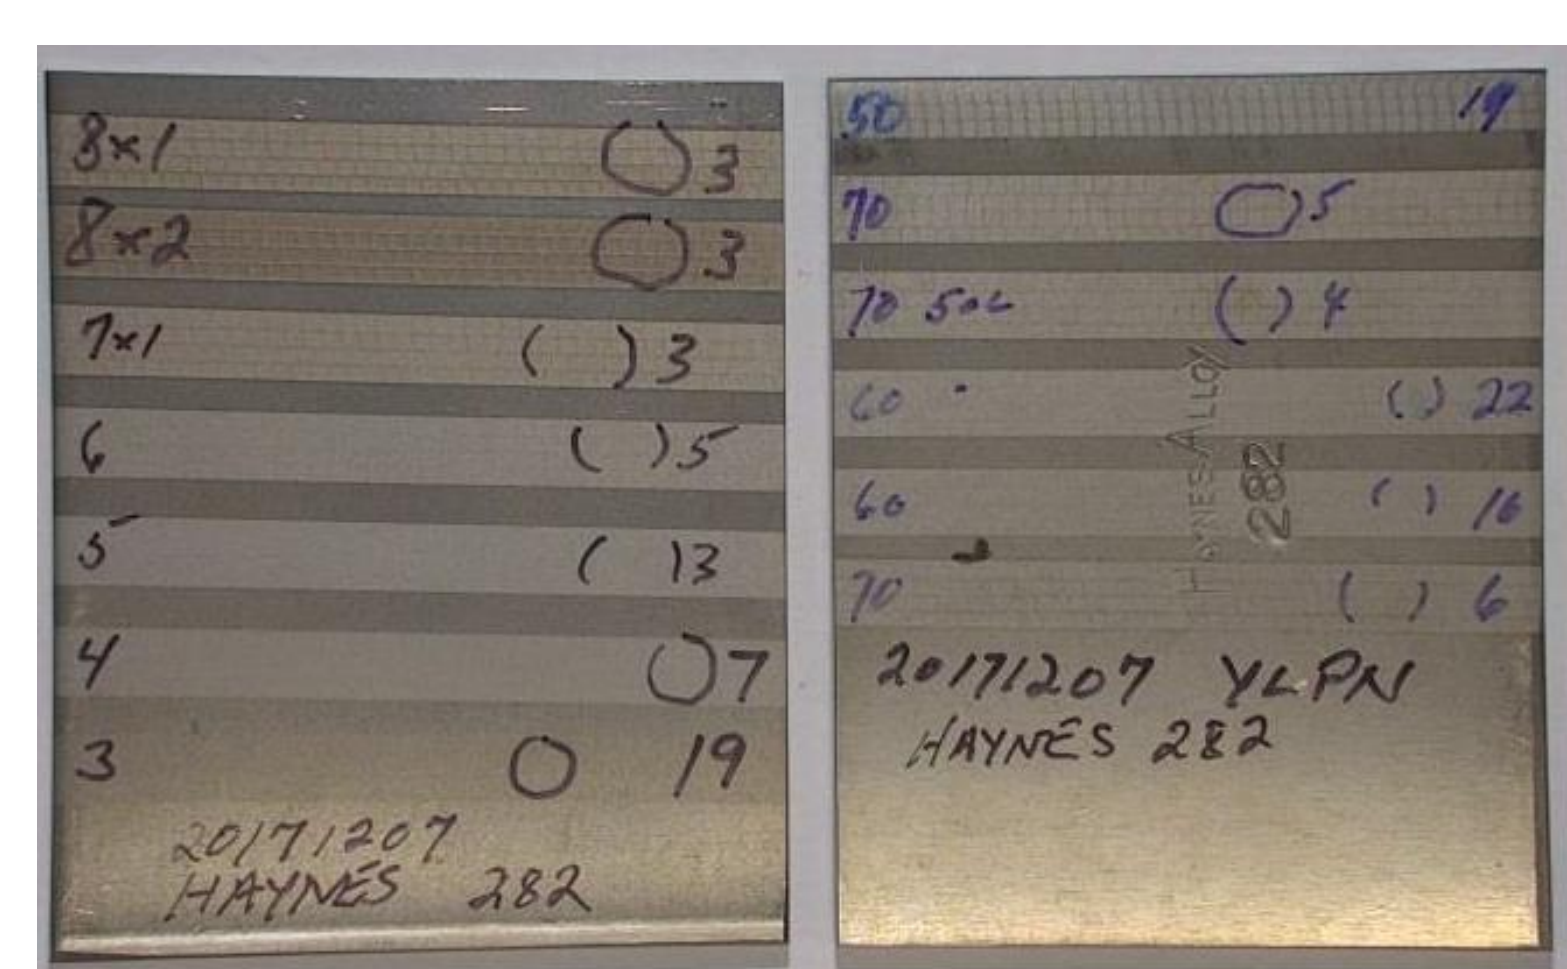 8x1 3
8x2 3
7x1 ( ) 3
6 ( ) 5
5 ( ) 3
4 7
3 19
20171207
HAYNES 282
50 19
70 5
70 ( ) 4
60 ( ) 22
60 ( ) 16
70 ( ) 6
HAYNES ALLOY
282
20171207 YLPN
HAYNES 282